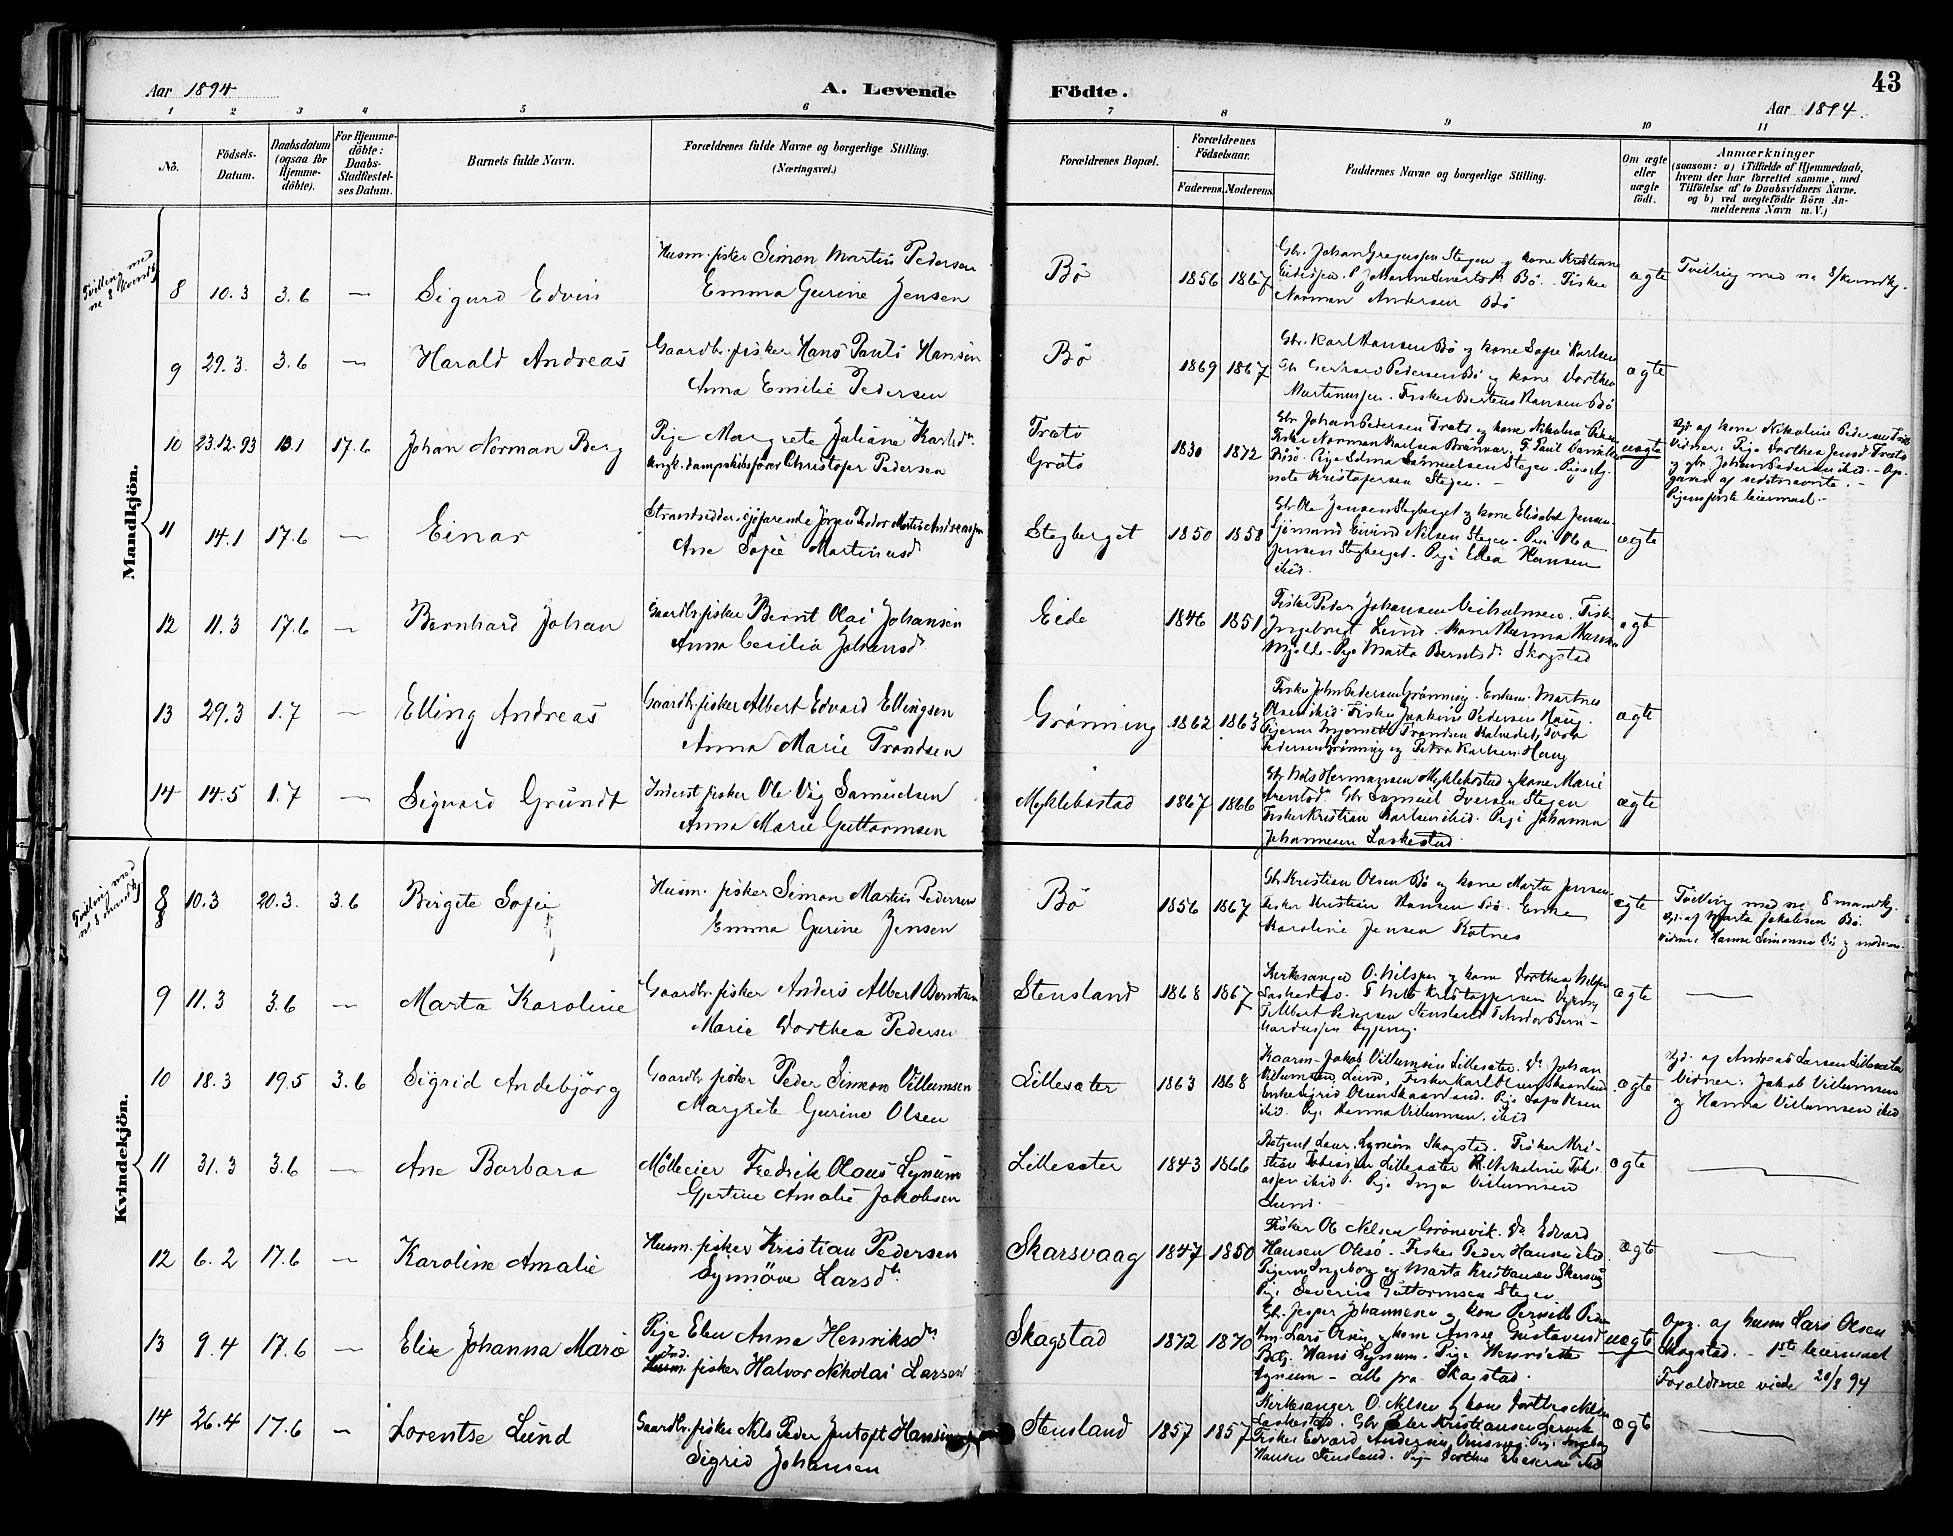 43
Aar 1894
A. Levende
Födte.
Aar 1894.
1 2 3 4 5 6 7 8 9 10 11
No.
Födsels-
Datum.
Daabsdatum
(ogsaa for
Hjemme-
döbte).
For Hjemme-
döbte:
Daabs-
Stadfæstel-
ses Datum.
Barnets fulde Navn.
Forældrenes fulde Navne og borgerlige Stilling.
(Næringsvei.)
Forældrenes Bopæl.
Forældrenes
Födselsaar.
Faderens. Moderens.
Faddernes Navne og borgerlige Stilling.
Om ægte
eller
uægte
födt.
Anmærkninger
(saasom: a) i Tilfælde af Hjemmedaab,
hvem der har forrettet samme, med
Tilföielse af to Daabsvidners Navne,
og b) ved uægtefödte Börn An-
melderens Navn m. V.)
Mandkjön.
Tvilling med
no 8 kvindk
8 10.3 3.6 — Sigurd Edvin
Husm. fisker Simon Martin Pedersen
Emma Gurine Jensen
Bø 1856 1867
Norman Andersen Bø
ægte
Tvilling med no 8/kvindkj.
9 29.3. 3.6 — Harald Andreas
Gaardbr. fisker Hans Pauli Hansen
Anna Emilie Pedersen
Bø 1869 1867
Gbr. Karl Hansen Bø og kone Sofie Karlsen
Gbr Gerhard Pedersen Bø og kone Dorthea
Martinussen. Fisker Bertens Hansen Bø
ægte
10 23.12.93 13.1 17.6 Johan Norman Berg
Pige Margrete Juliane Karlsd.
Christofer Pedersen
Tratø
Grøtø
1830 1872
Gbr Johan Pedersen Tratø og kone Nikoline
Pige Selma Samuelsen Stegen. Pige Ag-
nete Kristofersen Stegen. —
uægte
Hjd af kone Nikoline Pedersen
Vidner: Pige Dorthea Jensd Tratø
og gbr. Johan Pedersen ibid. — Op-
gaved af sidstnævnte. —
Pigens første leiermaal —
11 14.1 17.6 — Einar
Strandsidder, sjøfarende Jørgen Teodor Martin Andreassen
Ane Sofie Martinusd.
Stegberget 1850 1858
Gbr Ole Jensen Stegberget og kone Elisabet Jensen
Sjømand Eivind Nielsen Stegen. Pige Olea
Jensen Stegberget. Pige Ellea Hansen
ibid.
ægte
12 11.3 17.6 — Bernhard Johan
Gaardbr. fisker Bernt Olai Johansen
Anna Cecilia Johansd.
Eide 1846 1851
Fisker Peder Johansen
Ingebrigt Lund. Kone Hanna Hansen
Mjelde. Pige Marta Berntsd. Skogstad
ægte
13 29.3 1.7 — Elling Andreas
Gaardb. fisker Albert Edvard Ellingsen
Anna Marie Trondsen
Grønning 1862 1863
Fisker John Pedersen Grønning. Enkem. Martnes
Olsen ibid. Fisker Joakim Pedersen Haug.
Pedersen Grønning og Petra Karlsen Haug
ægte
14 14.5 1.7 — Sigvard Grundt
Inderst fisker Ole Våg Samuelsen
Anna Marie Guttormsen
Myklebostad 1867 1866
Gbr Nels Hermansen Myklebostad og kone Marie
Arentsd. Gbr Samuel Iversen Stegen
Fisker Kristian Karlsen ibid. Pige Johanna
Johannesen Laskestad.
ægte
Kvindekjön.
Tvilling med
no 8 mandkj
8 10.3 20.3. 3.6 Birgite Sofie
Husm. fisker Simon Martin Pedersen
Emma Gurine Jensen
Bø 1856 1867
Gbr Kristian Olsen Bø og kone Marta Jensen.
Fisker Kristian Hansen Bø. Enke
Karoline Jensen Kotnes
ægte
Tvilling med no 8 mandkj.
Hjd. af Marta Jakobsen Bø.
Vidner: Hanna Simonsen Bø og moderen
9 11.3 3.6 — Marta Karoline
Gaardbr. fisker Anders Albert Berntsen
Marie Dorthea Pedersen
Stensland 1868 1867
Kirkesanger O. Nilsen og kone Dorthea Nilsen
Laskestad.
ægte —
10 18.3 19.5 3.6 Sigrid Andebjørg
Gaardbr fisker Peder Simon Villumsen
Margrete Gurine Olsen
Lillesæter 1863 1868
Kaarm. Jakob Villumsen Lillesæter. Do Johan
Villumsen Lund. Fisker Karl Olsen Skaanland
Enke Sigrid Olsen Skaanland. Pige Sofie Olsen
ibid. Pige Hanna Villumsen. ibid
ægte
Hjd. af Andreas Larsen Lillesæter
Vidner: Jakob Villumsen
og Hanna Villumsen ibid
11 31.3 3.6 — Ane Barbara
Mølleeier Fredrik Olaus Lynum
Gjertine Amalie Jakobsen
Lillesæter 1843 1866
Betjent Laur. Lynum Skogstad. Fisker Kri-
stian Tobiassen Lillesæter
ibid. Pige Inga Villumsen
Lund.
ægte —
12 6.2 17.6 — Karoline Amalie
Husm. fisker Kristian Pedersen
Synnøve Larsd.
Skarsvaag 1847 1850
Fisker Ol Nilsen Grønevik. Do Edvard
Hansen Olsø. Fisker Peder Hansen ibid.
Pigerne Ingeborg og Marta Kristiansen Skarsvåg
Pige Severine Guttormsen Stegen
ægte —
13 9.4 17.6 — Elise Johanna Marie
Pige Elen Anna Henriksd.
Ind.
Husm. fisker Halvor Nikolai Larsen
Skagstad 1872 1870
Gbr. Jesper Johannesen og kone Pernille Peder-
sen. Lars Olsen og kone Anne Gustavusd
Betj. Hans Lynum. Pige Henriette
Lynum — alle fra Skagstad.
uægte
Opg. af husm Lars Olsen
Skagstad. — 1ste leiermaal
Forældrene viede 20/8 94
14 26.4 17.6 — Lorentse Lund
Gaardbr. fisker Nils Peder Jentoft Hansen
Sigrid Johansen
Stensland 1857 1857
Kirkesanger O. Nilsen og kone Dorthea Nilsen
Laskestad. Gbr Peter Kristiansen Leirvik
Hansen Stensland. Pige Dorthea
ægte —